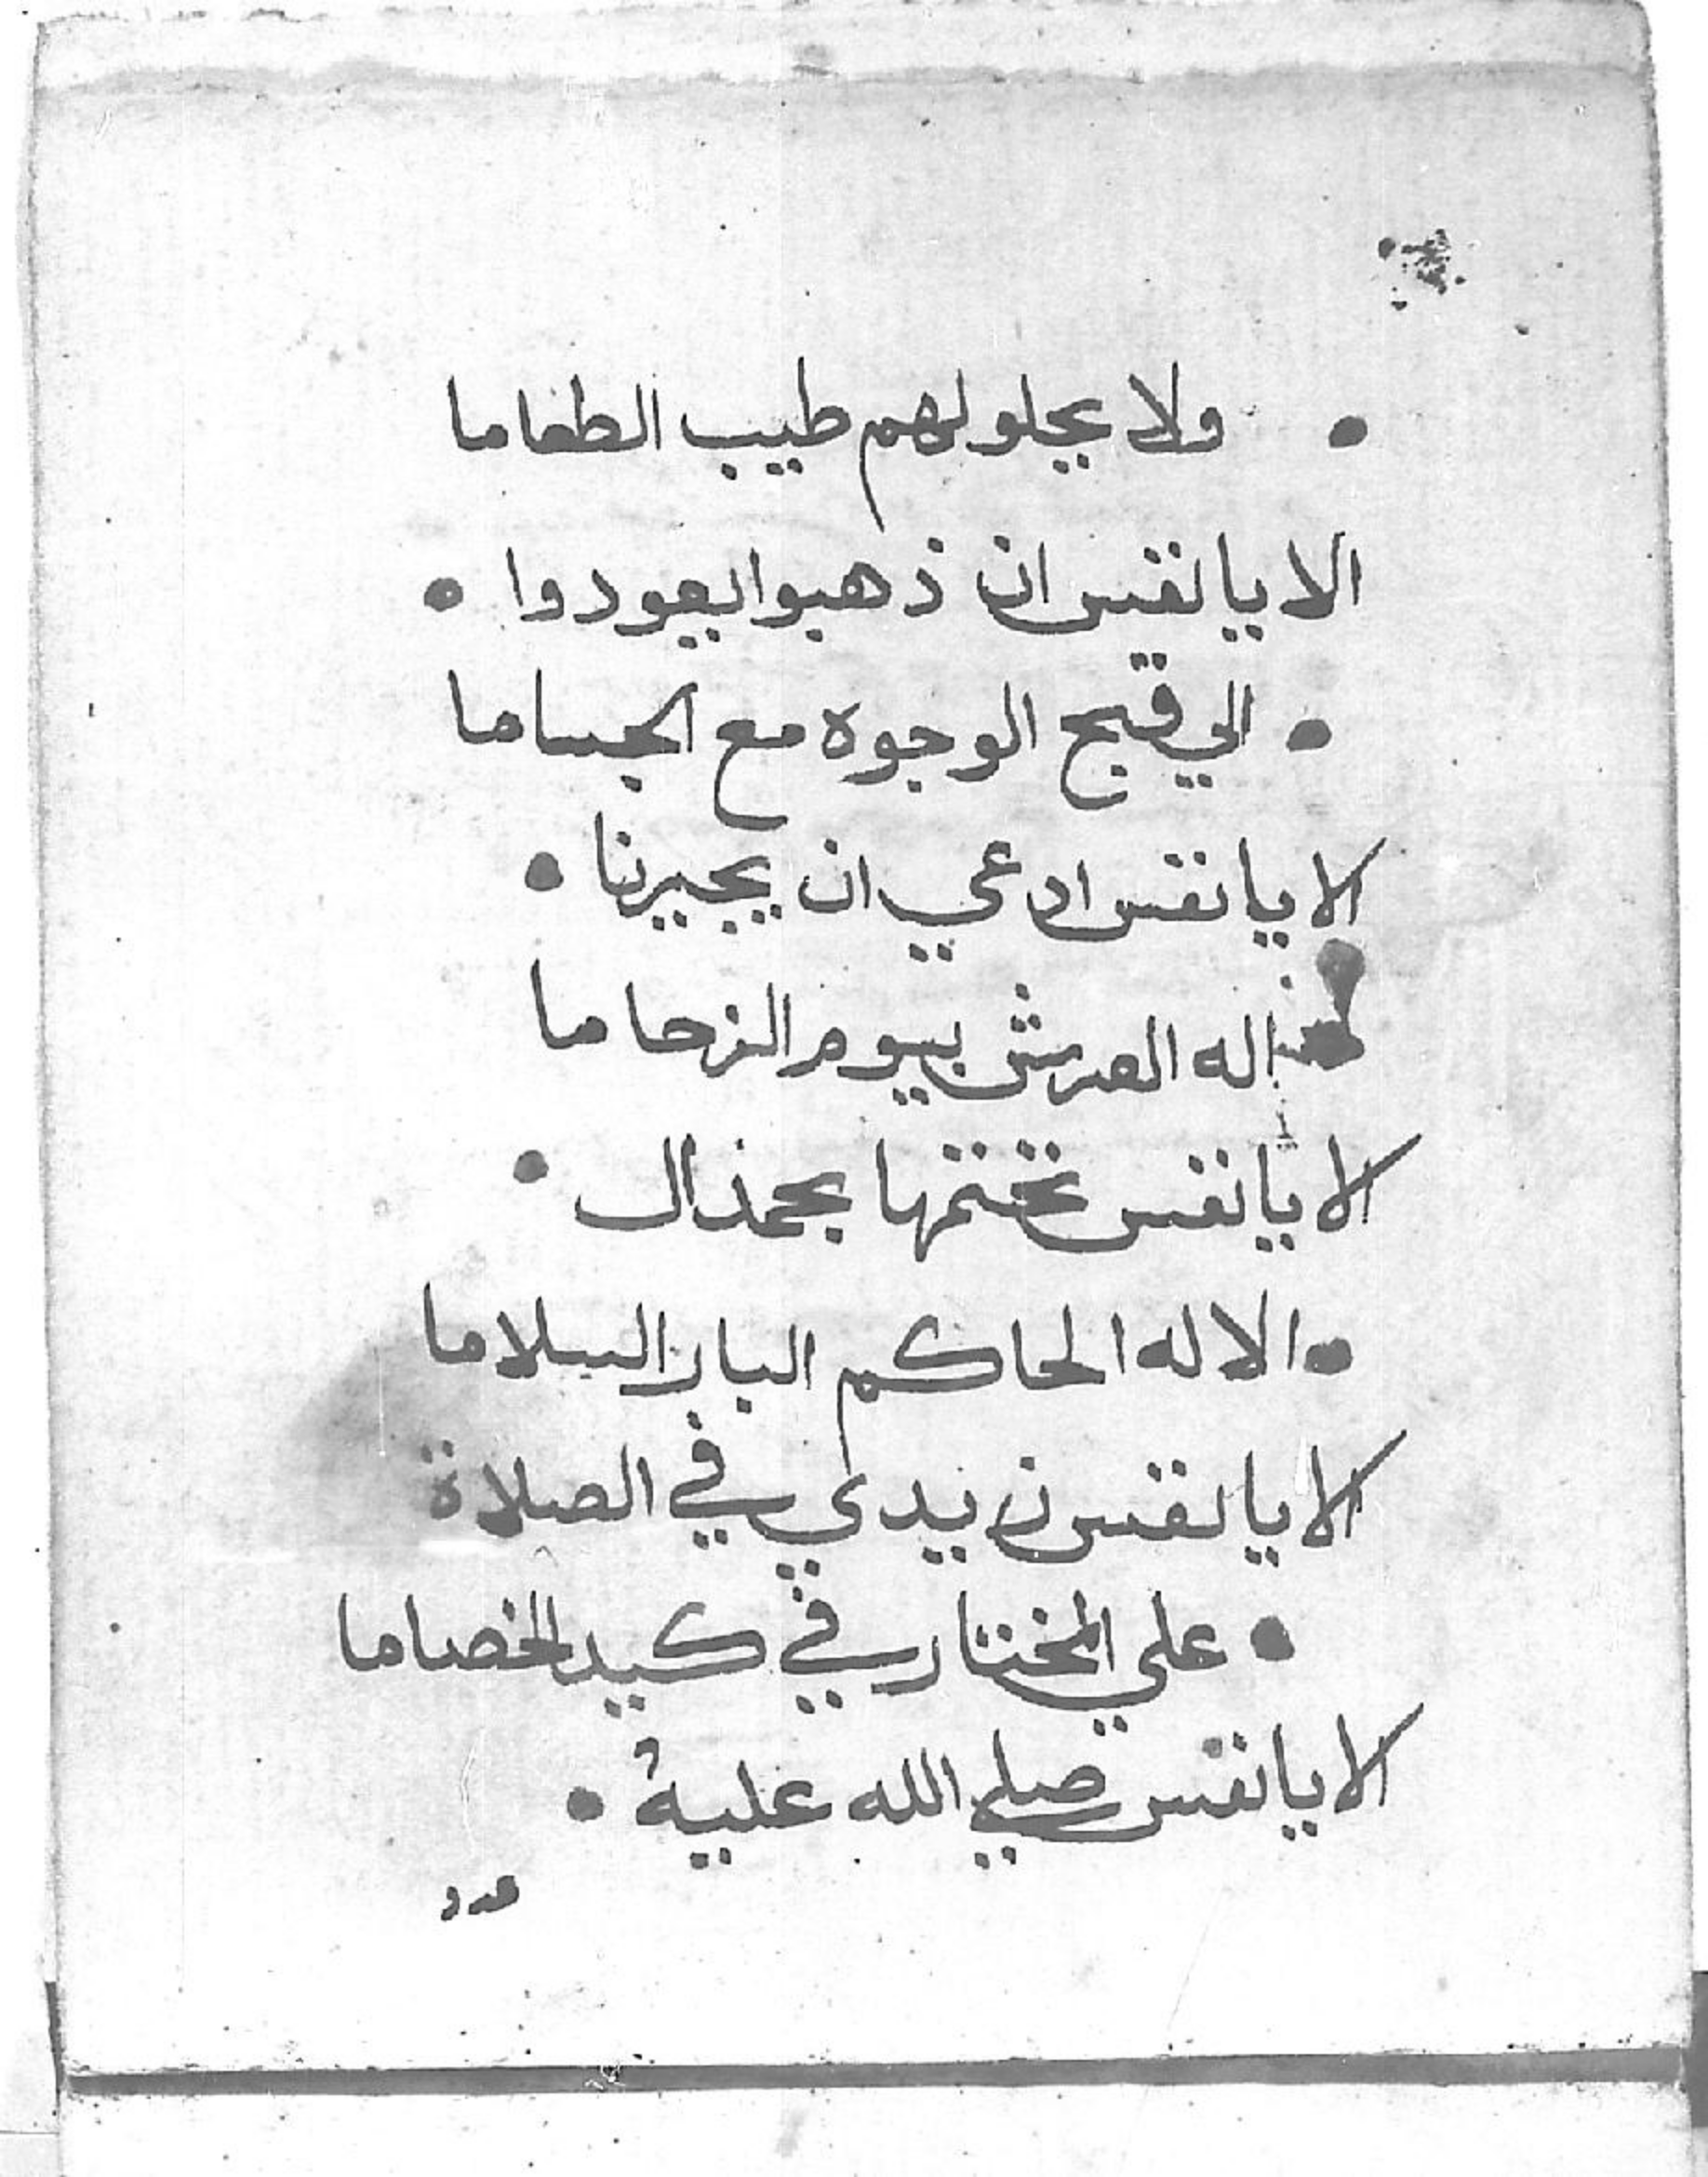 • ولا يحلو لهم طيب الطعاما
الا يا نفس ان ذهبوا يعودوا •
• الي قبح الوجوة مع الجساما
الا يا نفس ادعي ان يجيرنا •
اله العرش بيوم الزحاما
الا يا نفس تختمها بحمذال •
• الاله الحاكم البار السلاما
الا يا نفس زيدي في الصلاة
• علي المختار في كيد الخصاما
الا يا نفس صلي الله علية •
عدد